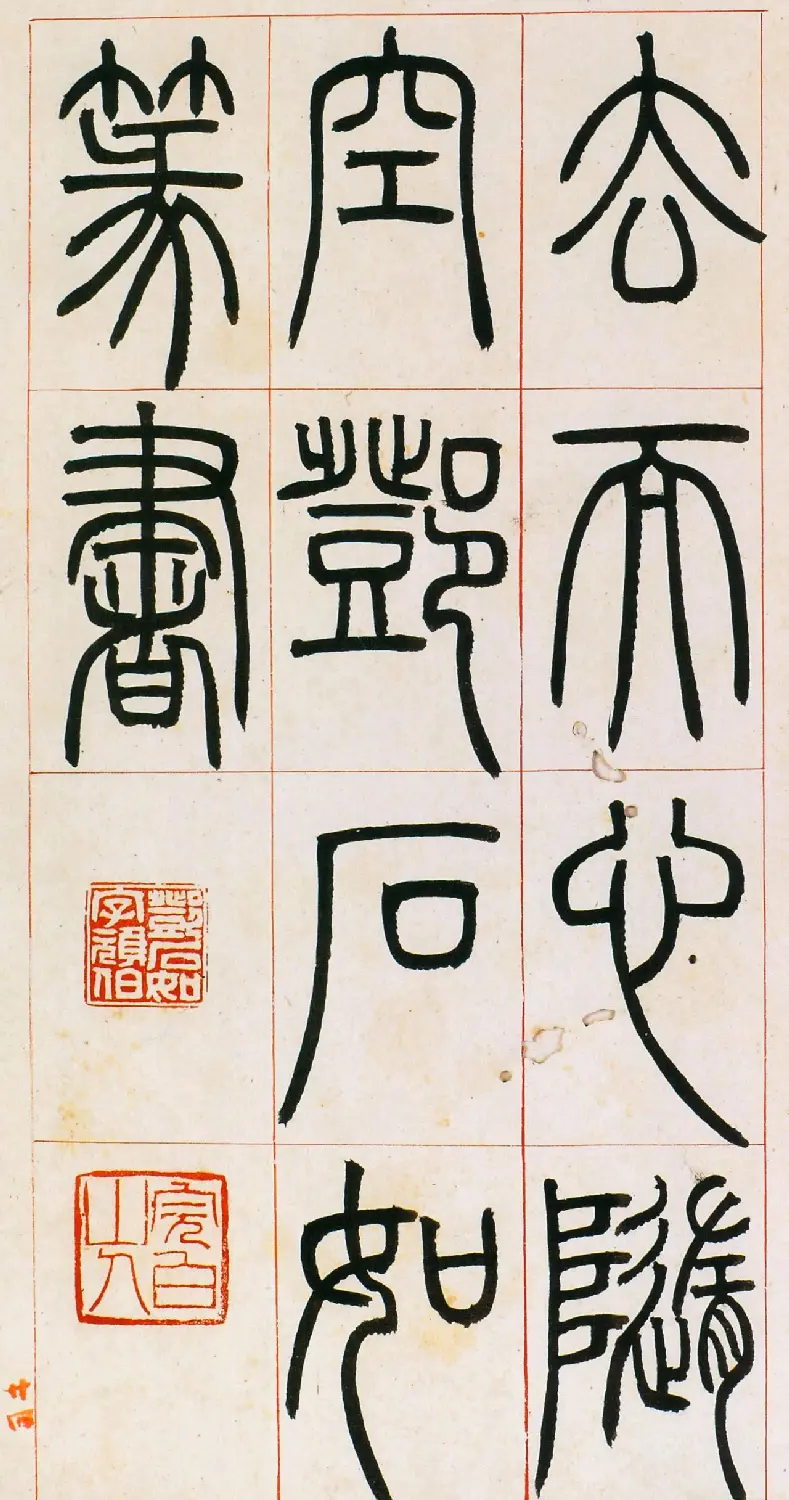 去而心隨
空鄧石如
篆書
鄧石如字頑伯
完白山人